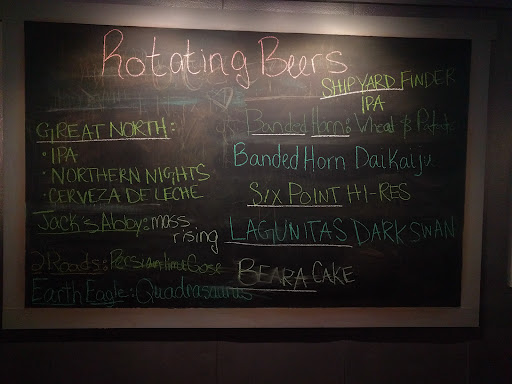 Rotating Beers
GREAT NORTH:
· IPA
· NORTHERN NIGHTS
· CERVEZA DE LECHE
Jack's Abby: mass
rising
2 Roads: Persian lime Gose
Earth Eagle: Quadrasaurus
SHIPYARD FINDER
IPA
Banded Horn: Wheat & Potato
Banded Horn Daikaiju
SIX POINT HI-RES
LAGUNITAS DARK SWAN
BEARA CAKE